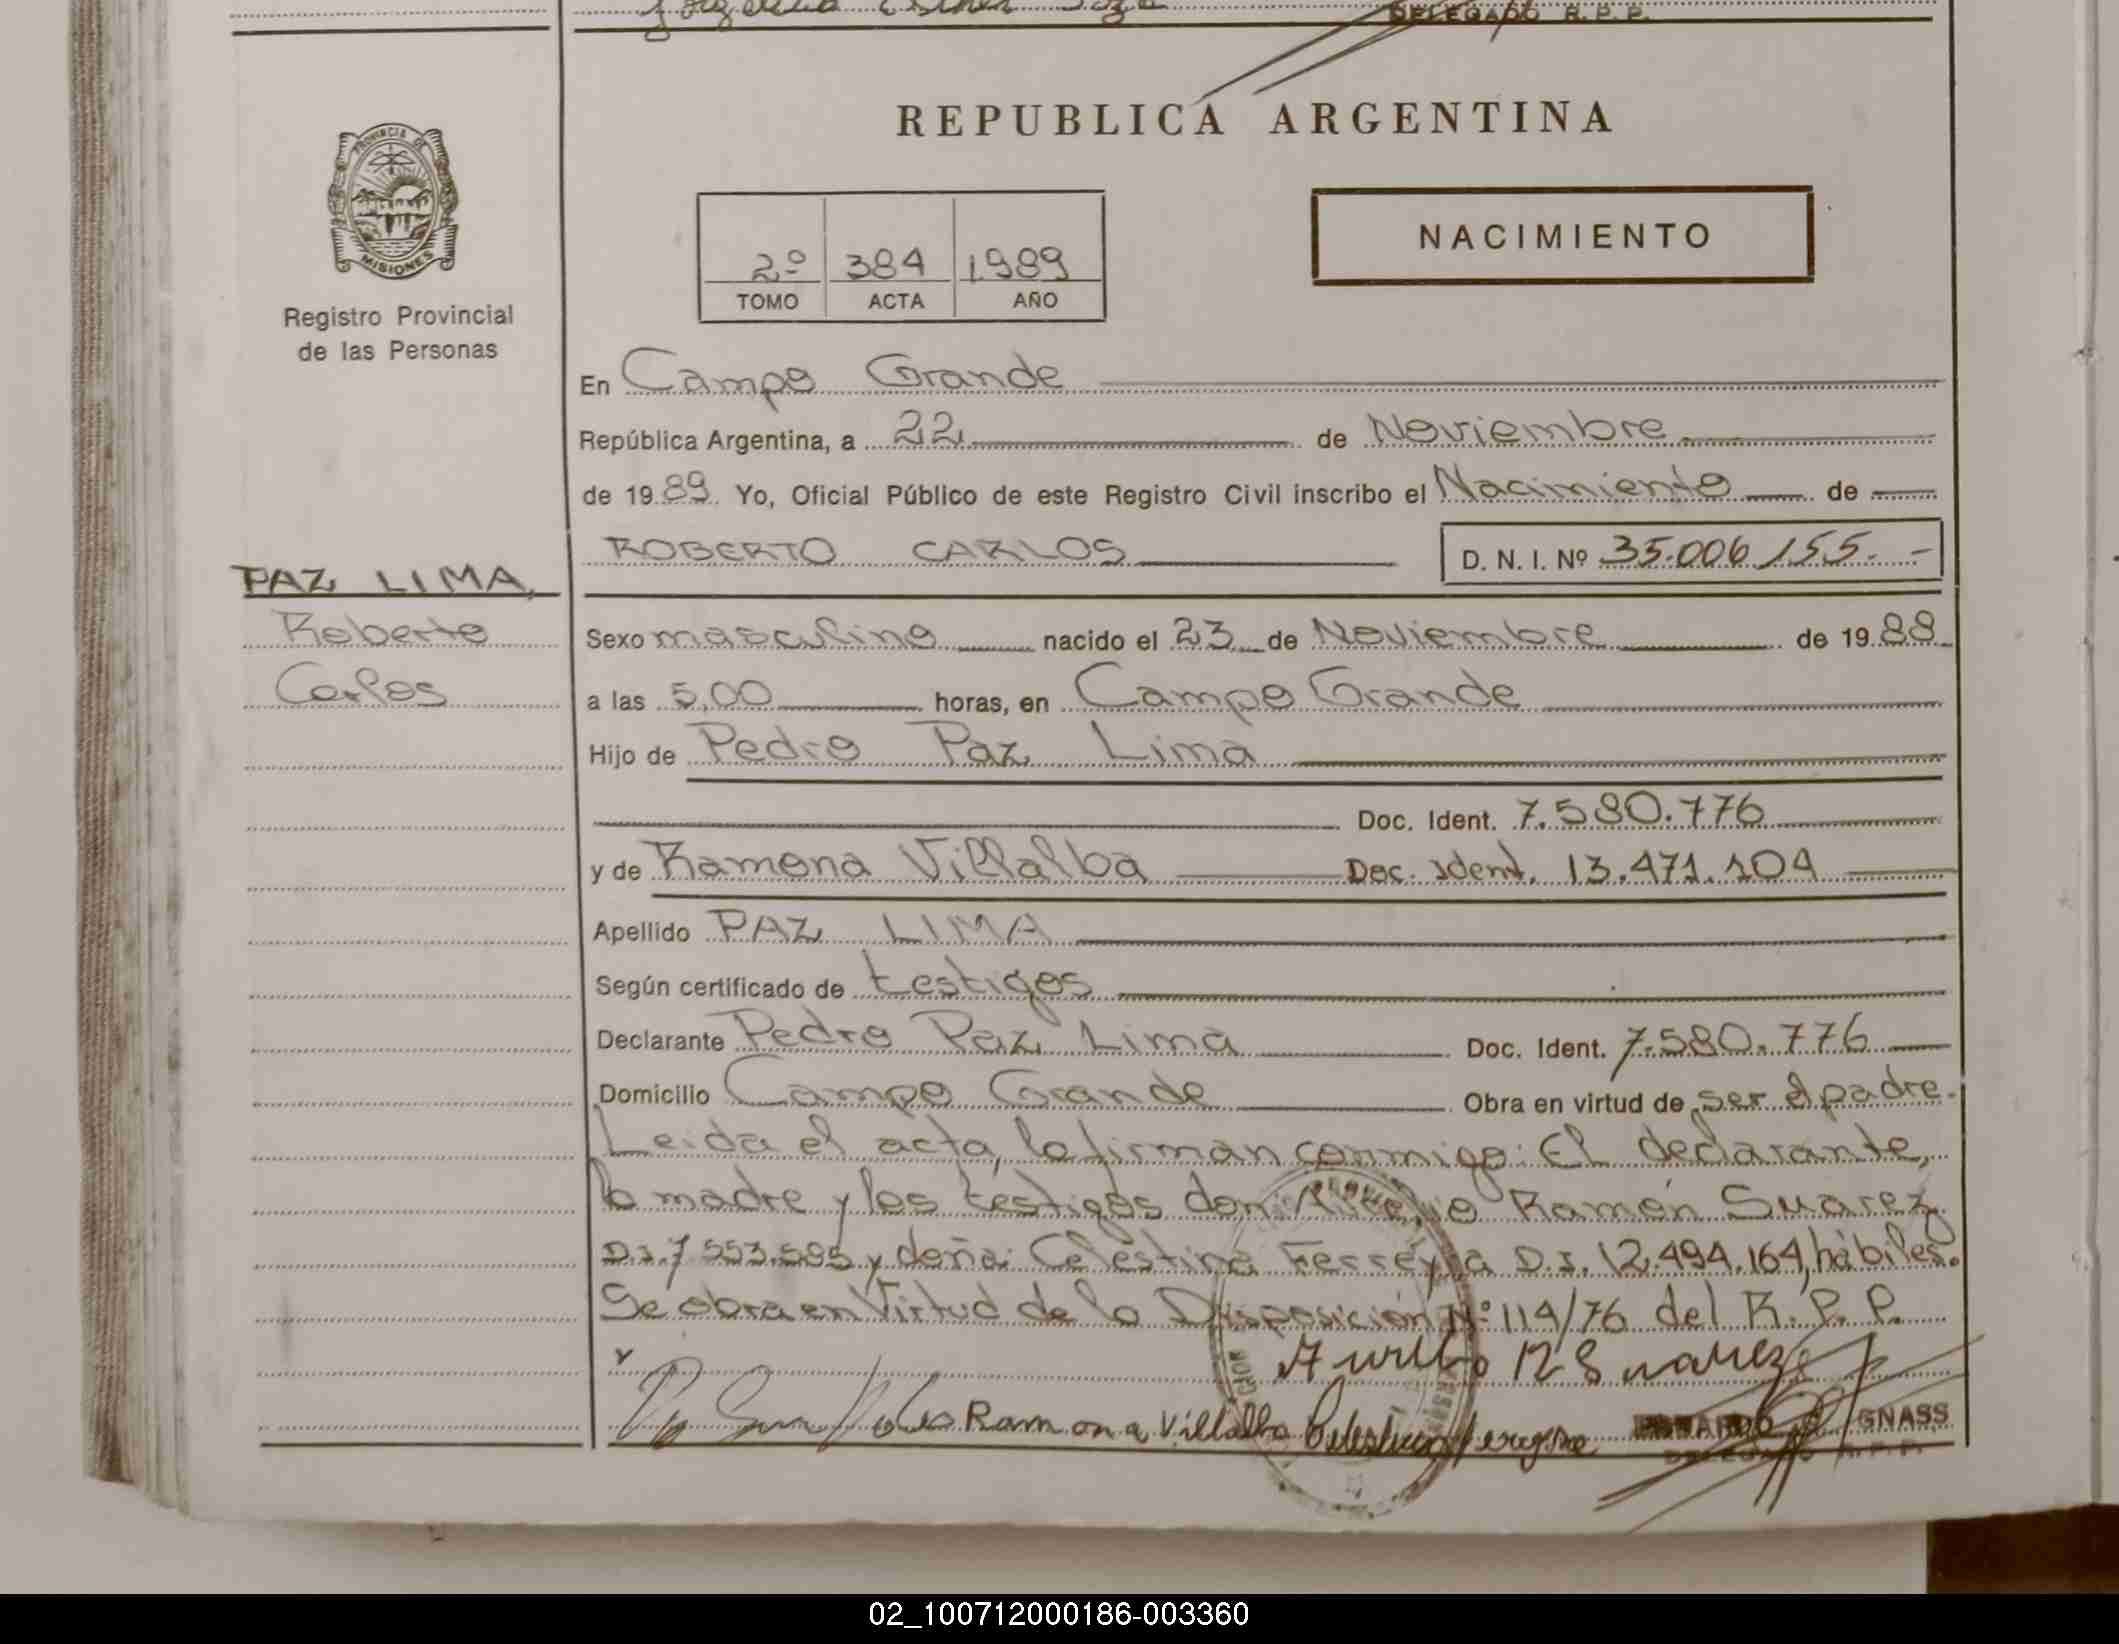 DELEGADO R. P. P.
REPUBLICA ARGENTINA
PROVINCIA DE
MISIONES
Registro Provincial
de las Personas
2º 384 1989
TOMO ACTA AÑO
NACIMIENTO
En Campo Grande
República Argentina, a 22 de Noviembre
de 1989 Yo, Oficial Público de este Registro Civil inscribo el Nacimiento de
ROBERTO CARLOS D. N. I. Nº 35.006.155.-
PAZ LIMA,
Roberto
Carlos
Sexo masculino nacido el 23 de Noviembre de 1988
a las 5,00 horas, en Campo Grande
Hijo de Pedro Paz Lima
Doc. Ident. 7.580.776
y de Ramona Villalba Doc. Ident. 13.471.104
Apellido PAZ LIMA
Según certificado de testigos
Declarante Pedro Paz Lima Doc. Ident. 7.580.776
Domicilio Campo Grande Obra en virtud de ser el padre.
Leida el acta, la firman conmigo: El declarante,
la madre y los testigos don Ramón Suarez
D.I. 7.553.595 y doña: Celestina Ferreyra D.I. 12.494.164, hábiles.
Se obra en Virtud de la Disposición Nº 114/76 del R. P. P.
Suarez
Ramona Villalba
GNASS
DELEGADO R. P. P.
02_100712000186-003360